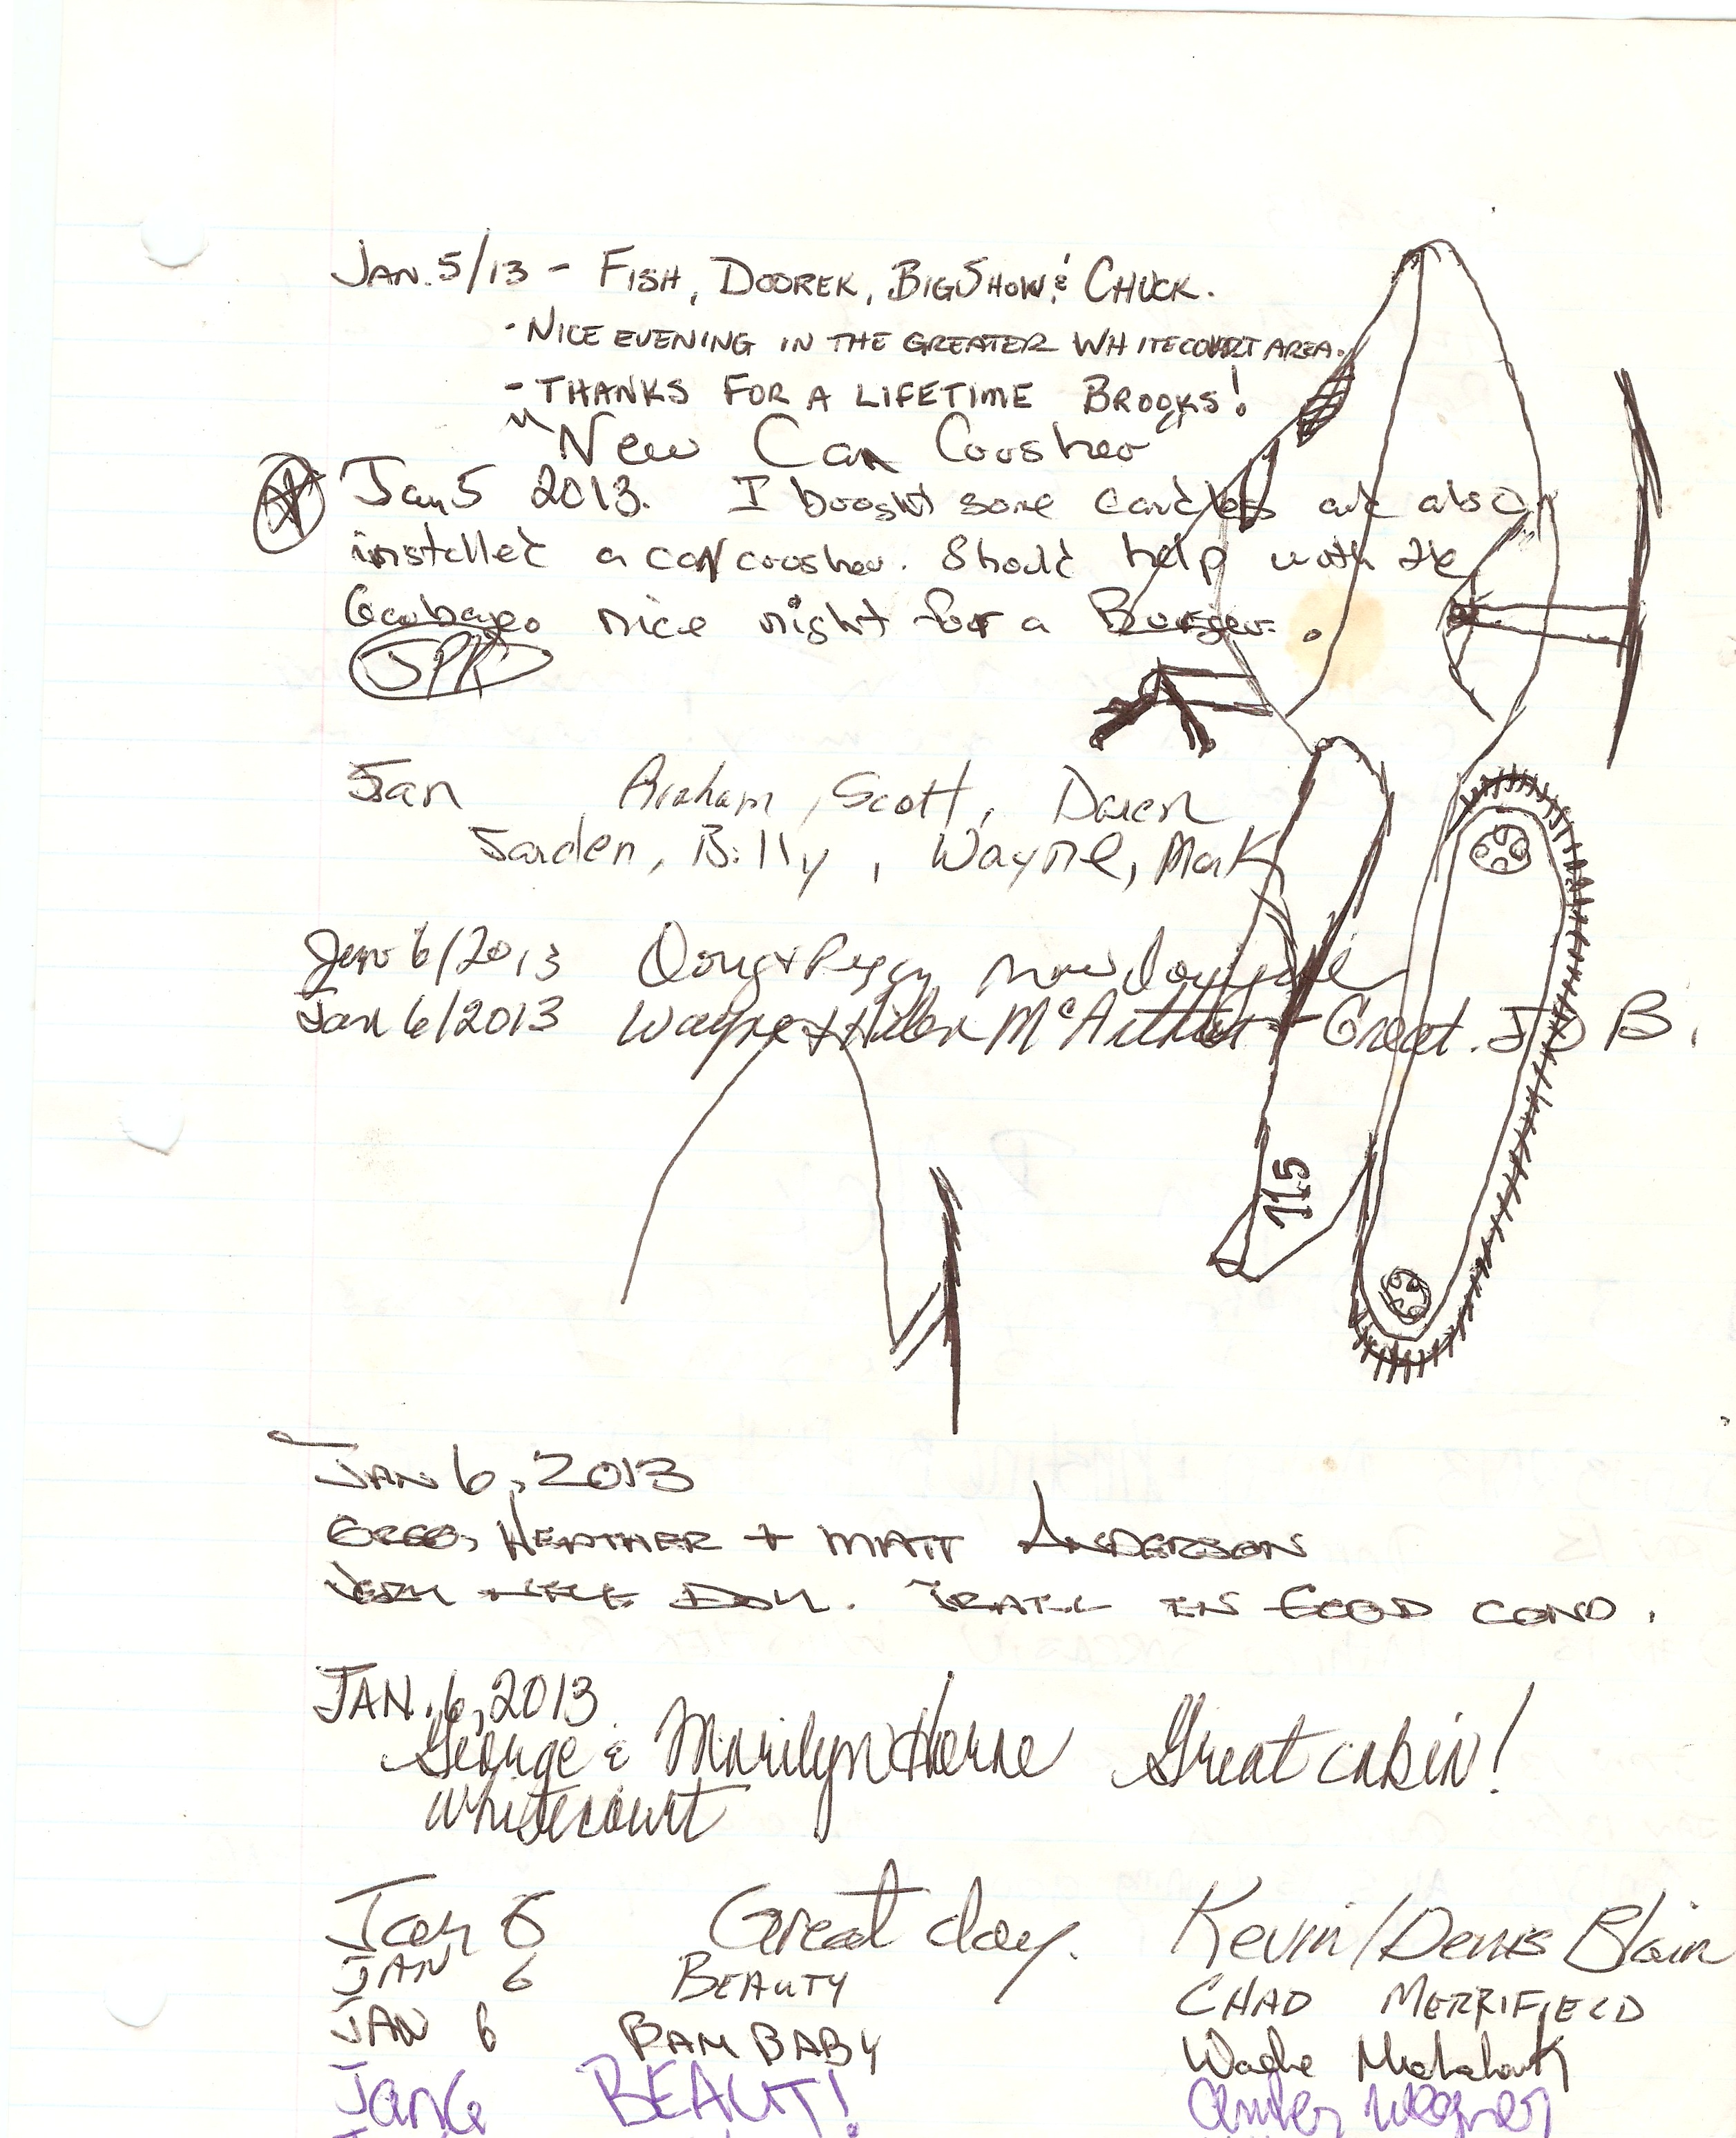 JAN. 5/13 - FISH, DOOREK, BIGSHOW & CHUCK.
- NICE EVENING IN THE GREATER WHITECOURT AREA.
- THANKS FOR A LIFETIME BROOKS!
"New Can Croosher"
Jan 5 2013. I booght some candles and also
installed a can croosher. Should help with the
Garbage. nice night for a Burger.
JPK
Jan Graham, Scott, Daren
Jarden, Billy, Wayne, Mark
Jan 6/2013 Doug & Peggy
Jan 6/2013 Wayne & Hilda McArthur - Great. J O B.
11.5
JAN 6, 2013
GREG, HEATHER + MATT ANDERSON
VERY NICE DAY. TRAIL IN GOOD COND.
JAN. 6, 2013
George & Marilyn Horne Great cabin!
Whitecourt
Jan 6 Great day. Kevin/Denis Blain
JAN 6 BEAUTY CHAD MERRIFIELD
JAN 6 BAM BABY
Jan 6 BEAUT! Wagner